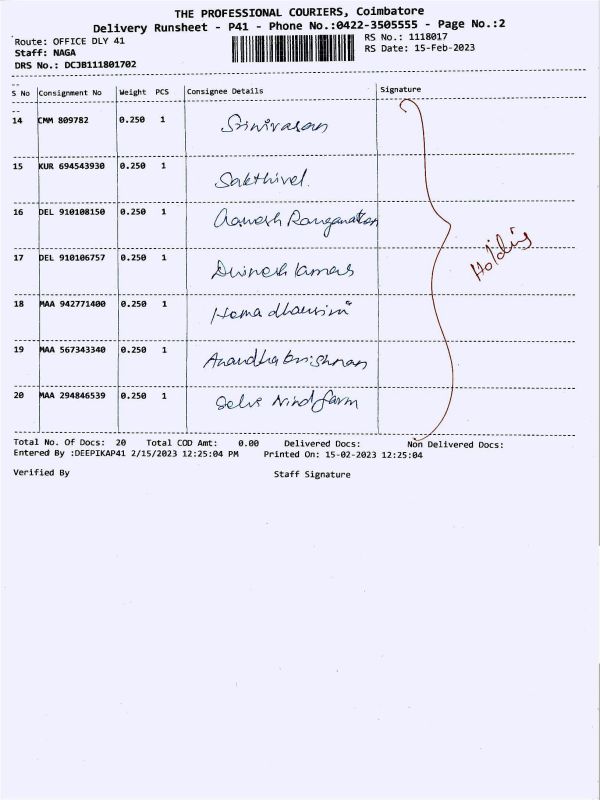 THE PROFESSIONAL COURIERS, Coimbatore
Delivery Runsheet - P41 - Phone No.:0422-3505555 - Page No.:2
Route: OFFICE DLY 41 RS No.: 1118017
Staff: NAGA RS Date: 15-Feb-2023
DRS No.: DCJB111801702
S No Consignment No Weight PCS Consignee Details Signature
14 CMM 809782 0.250 1 Srinivasan
15 KUR 694543930 0.250 1 Sakthivel.
16 DEL 910108150 0.250 1 Ranganathan
17 DEL 910106757 0.250 1 Kumar
Holding
18 MAA 942771400 0.250 1 Hema dharini
19 MAA 567343340 0.250 1 Anandha krishnan
20 MAA 294846539 0.250 1 Selvi Wind farm
Total No. Of Docs: 20 Total COD Amt: 0.00 Delivered Docs: Non Delivered Docs:
Entered By :DEEPIKAP41 2/15/2023 12:25:04 PM Printed On: 15-02-2023 12:25:04
Verified By Staff Signature